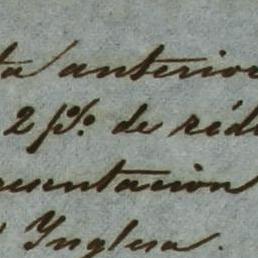 ta anterior
2 p%. de rédi
resentacion
Ynglesa.